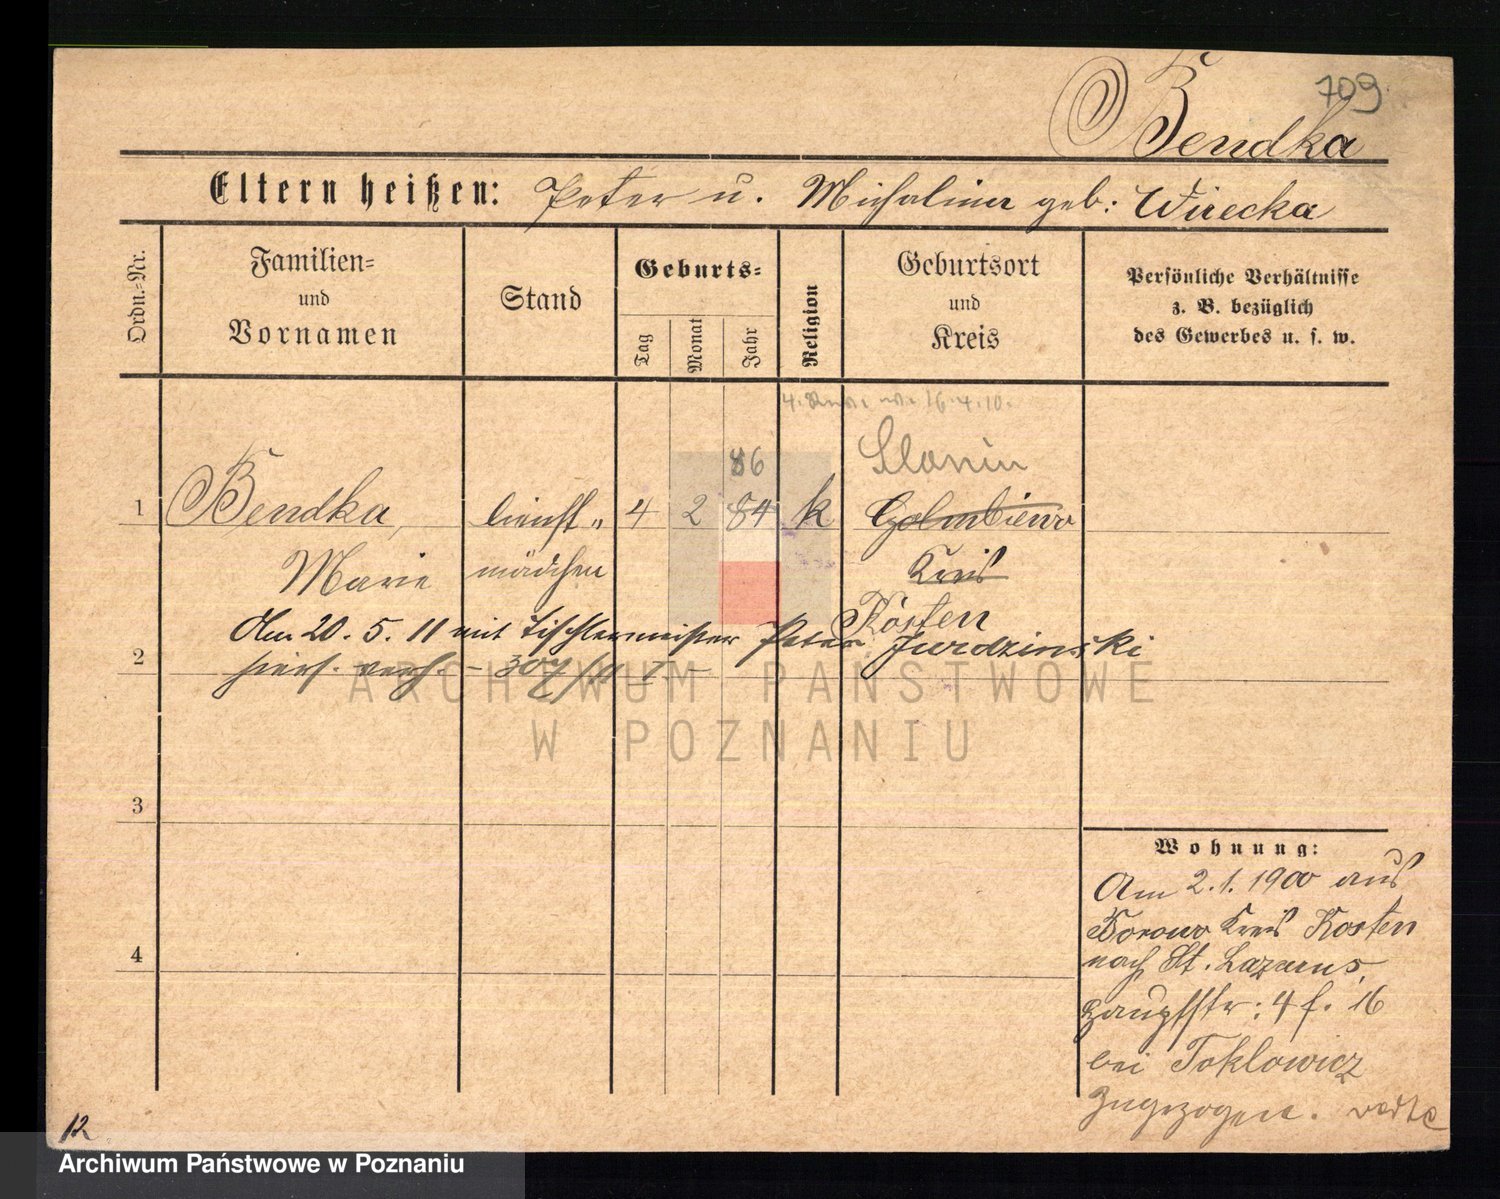 709
Bendka
Eltern heißen: Peter u. Michalina geb: Wirecka
Ordn.=Nr.
Familien=
und
Vornamen
Stand
Geburts=
Tag
Monat
Jahr
Religion
Geburtsort
und
Kreis
Persönliche Verhältnisse
z. B. bezüglich
des Gewerbes u. s. w.
16.4.10.
86
Slonin
1 Bendka, Dienst" 4 2 84 k Golembiewo
Marie mädchen Kreis
Kosten
Am 20. 5. 11 mit Tischlermeister Peter Jurdzinski
2 hiers. verh. - 307/11 I. -
ARCHIWUM PAŃSTWOWE
W POZNANIU
3
4
Wohnung:
Am 2.1.1900 aus
Borowo Kreis Kosten
nach St. Lazarus,
Hauptstr: 4 f. 16
bei Toklowicz
Zugezogen.
12
Archiwum Państwowe w Poznaniu